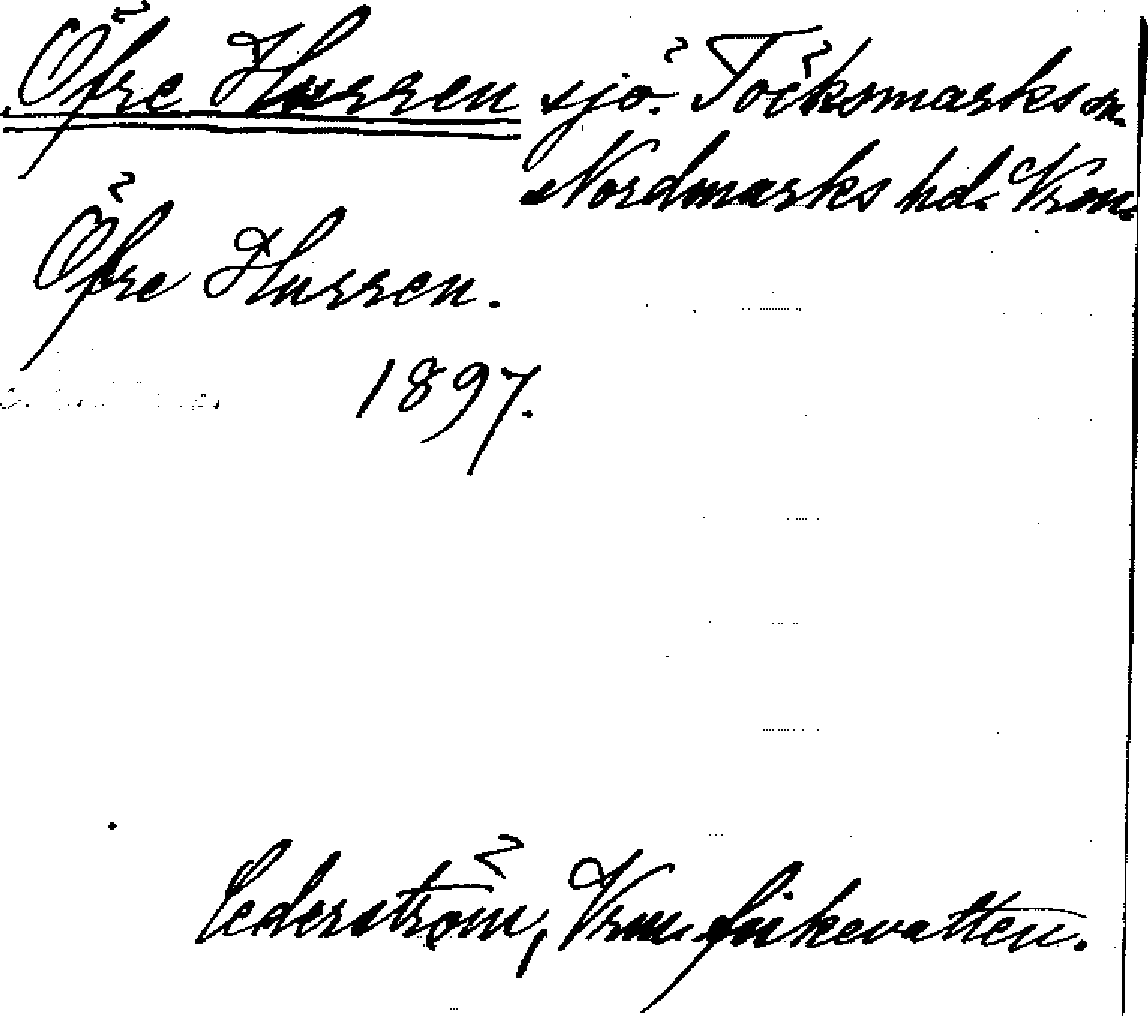 Öfre Hurren sjö. Töcksmarks sn.
Nordmarks hd. Vrm.
Öfre Hurren.
1897.
Cederström, Vrm. fiskevatten.